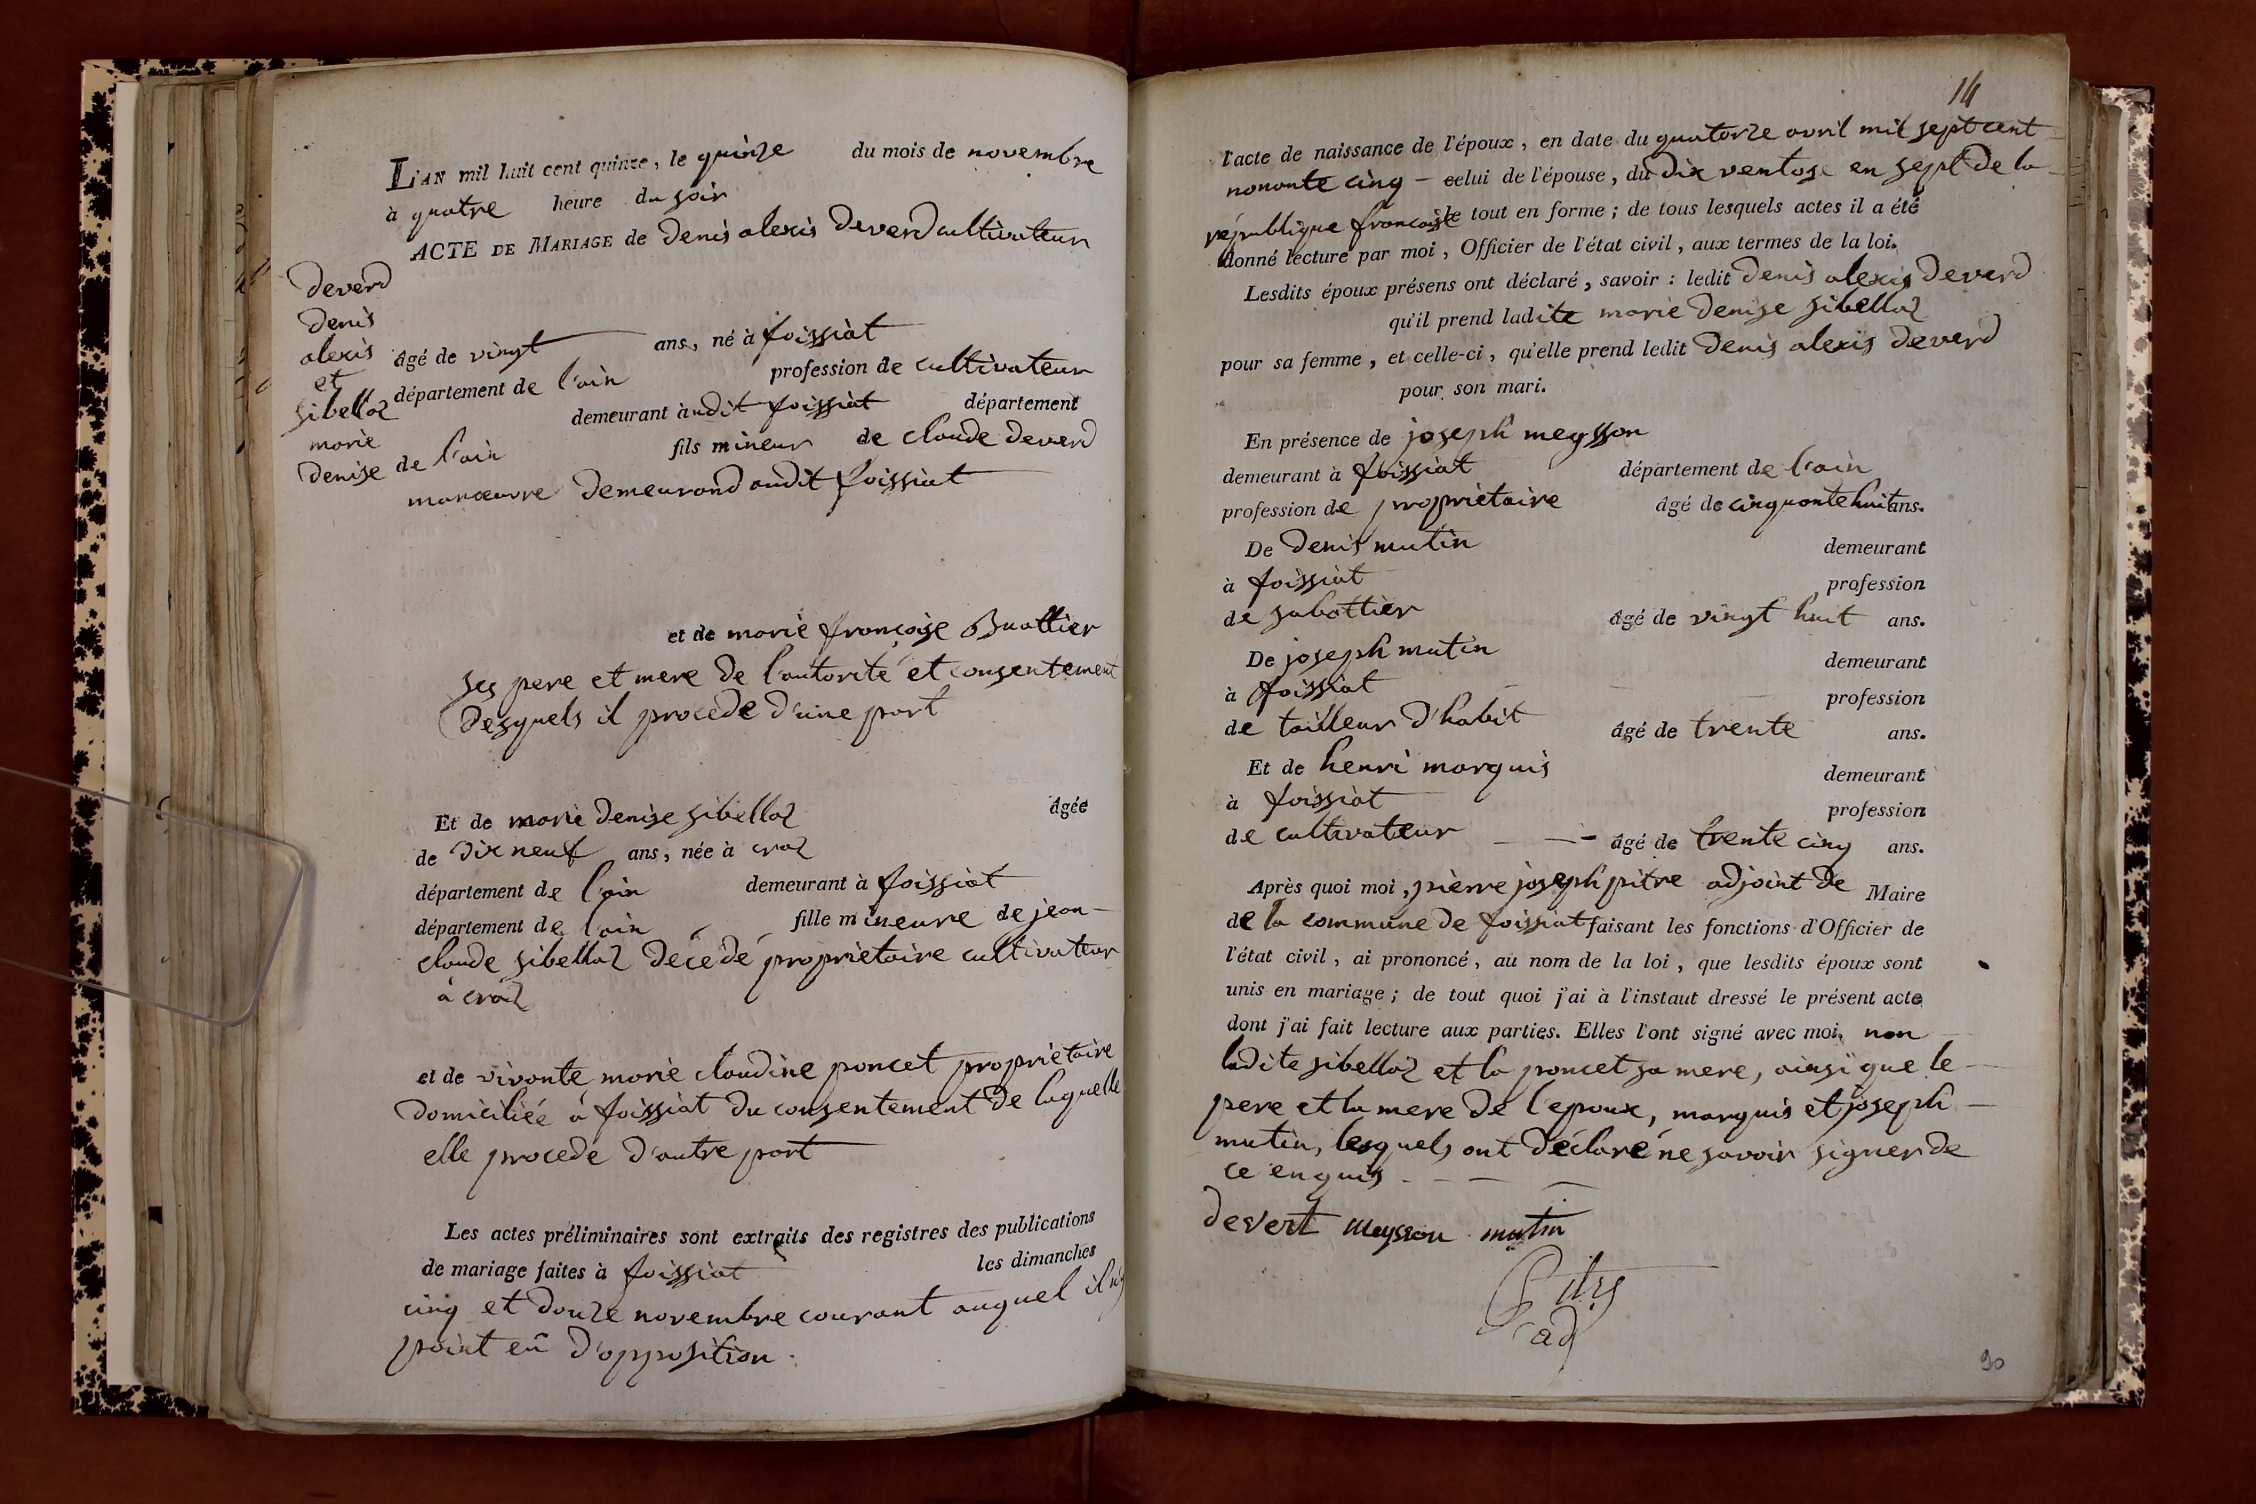 L'AN mil huit cent quinze, le quinze du mois de novembre
à quatre heure du soir
ACTE DE MARIAGE de denis alexis deverd cultivateur
deverd
denis
alexis
et
sibellas
marie
denise
âgé de vingt ans, né à foissiat
département de l'ain profession de cultivateur
demeurant àudit foissiat département
de l'ain fils mineur de claude deverd
manœuvre demeurand audit foissiat
et de marie françoise Buattier
ses pere et mere de l'autorité et consentement
desquels il procede d'une part
Et de marie denise sibellas âgée
de dix neuf ans, née à cras
département de l'ain demeurant à foissiat
département de l'ain fille mineure de jean-
claude sibellas décédé propriétaire cultivateur
à cras
et de vivante marie claudine poncet propriétaire
domiciliée à foissiat du consentement de laquelle
elle procede d'autre part
Les actes préliminaires sont extraits des registres des publications
de mariage faites à foissiat les dimanches
cinq et douze novembre courant auquel il n'y
point eû d'opposition.
14
l'acte de naissance de l'époux, en date du quatorze avril mil sept cent
nonante cinq - celui de l'épouse, du dix ventose en sept de la
république françoise le tout en forme; de tous lesquels actes il a été
donné lecture par moi, Officier de l'état civil, aux termes de la loi.
Lesdits époux présens ont déclaré, savoir: ledit denis alexis deverd
qu'il prend ladite marie denise sibellas
pour sa femme, et celle-ci, qu'elle prend ledit denis alexis deverd
pour son mari.
En présence de joseph meysson
demeurant à foissiat département de l'ain
profession de propriétaire âgé de cinquante huit ans.
De denis mutin demeurant
à foissiat profession
de sabottier âgé de vingt huit ans.
De joseph mutin demeurant
à foissiat profession
de tailleur d'habit âgé de trente ans.
Et de henri marquis demeurant
à foissiat profession
de cultivateur âgé de trente cinq ans.
Après quoi moi, pierre joseph pitre adjoint de Maire
de la commune de foissiat faisant les fonctions d'Officier de
l'état civil, ai prononcé, au nom de la loi, que lesdits époux sont
unis en mariage; de tout quoi j'ai à l'instaut dressé le présent acte
dont j'ai fait lecture aux parties. Elles l'ont signé avec moi, non
ladite sibellas et la poncet sa mere, ainsi que le
pere et la mere de l'epoux, marquis et joseph
mutin, lesquels ont déclaré ne savoir signer de
ce enquis
devert Meysson mutin
Pitre
adj
90